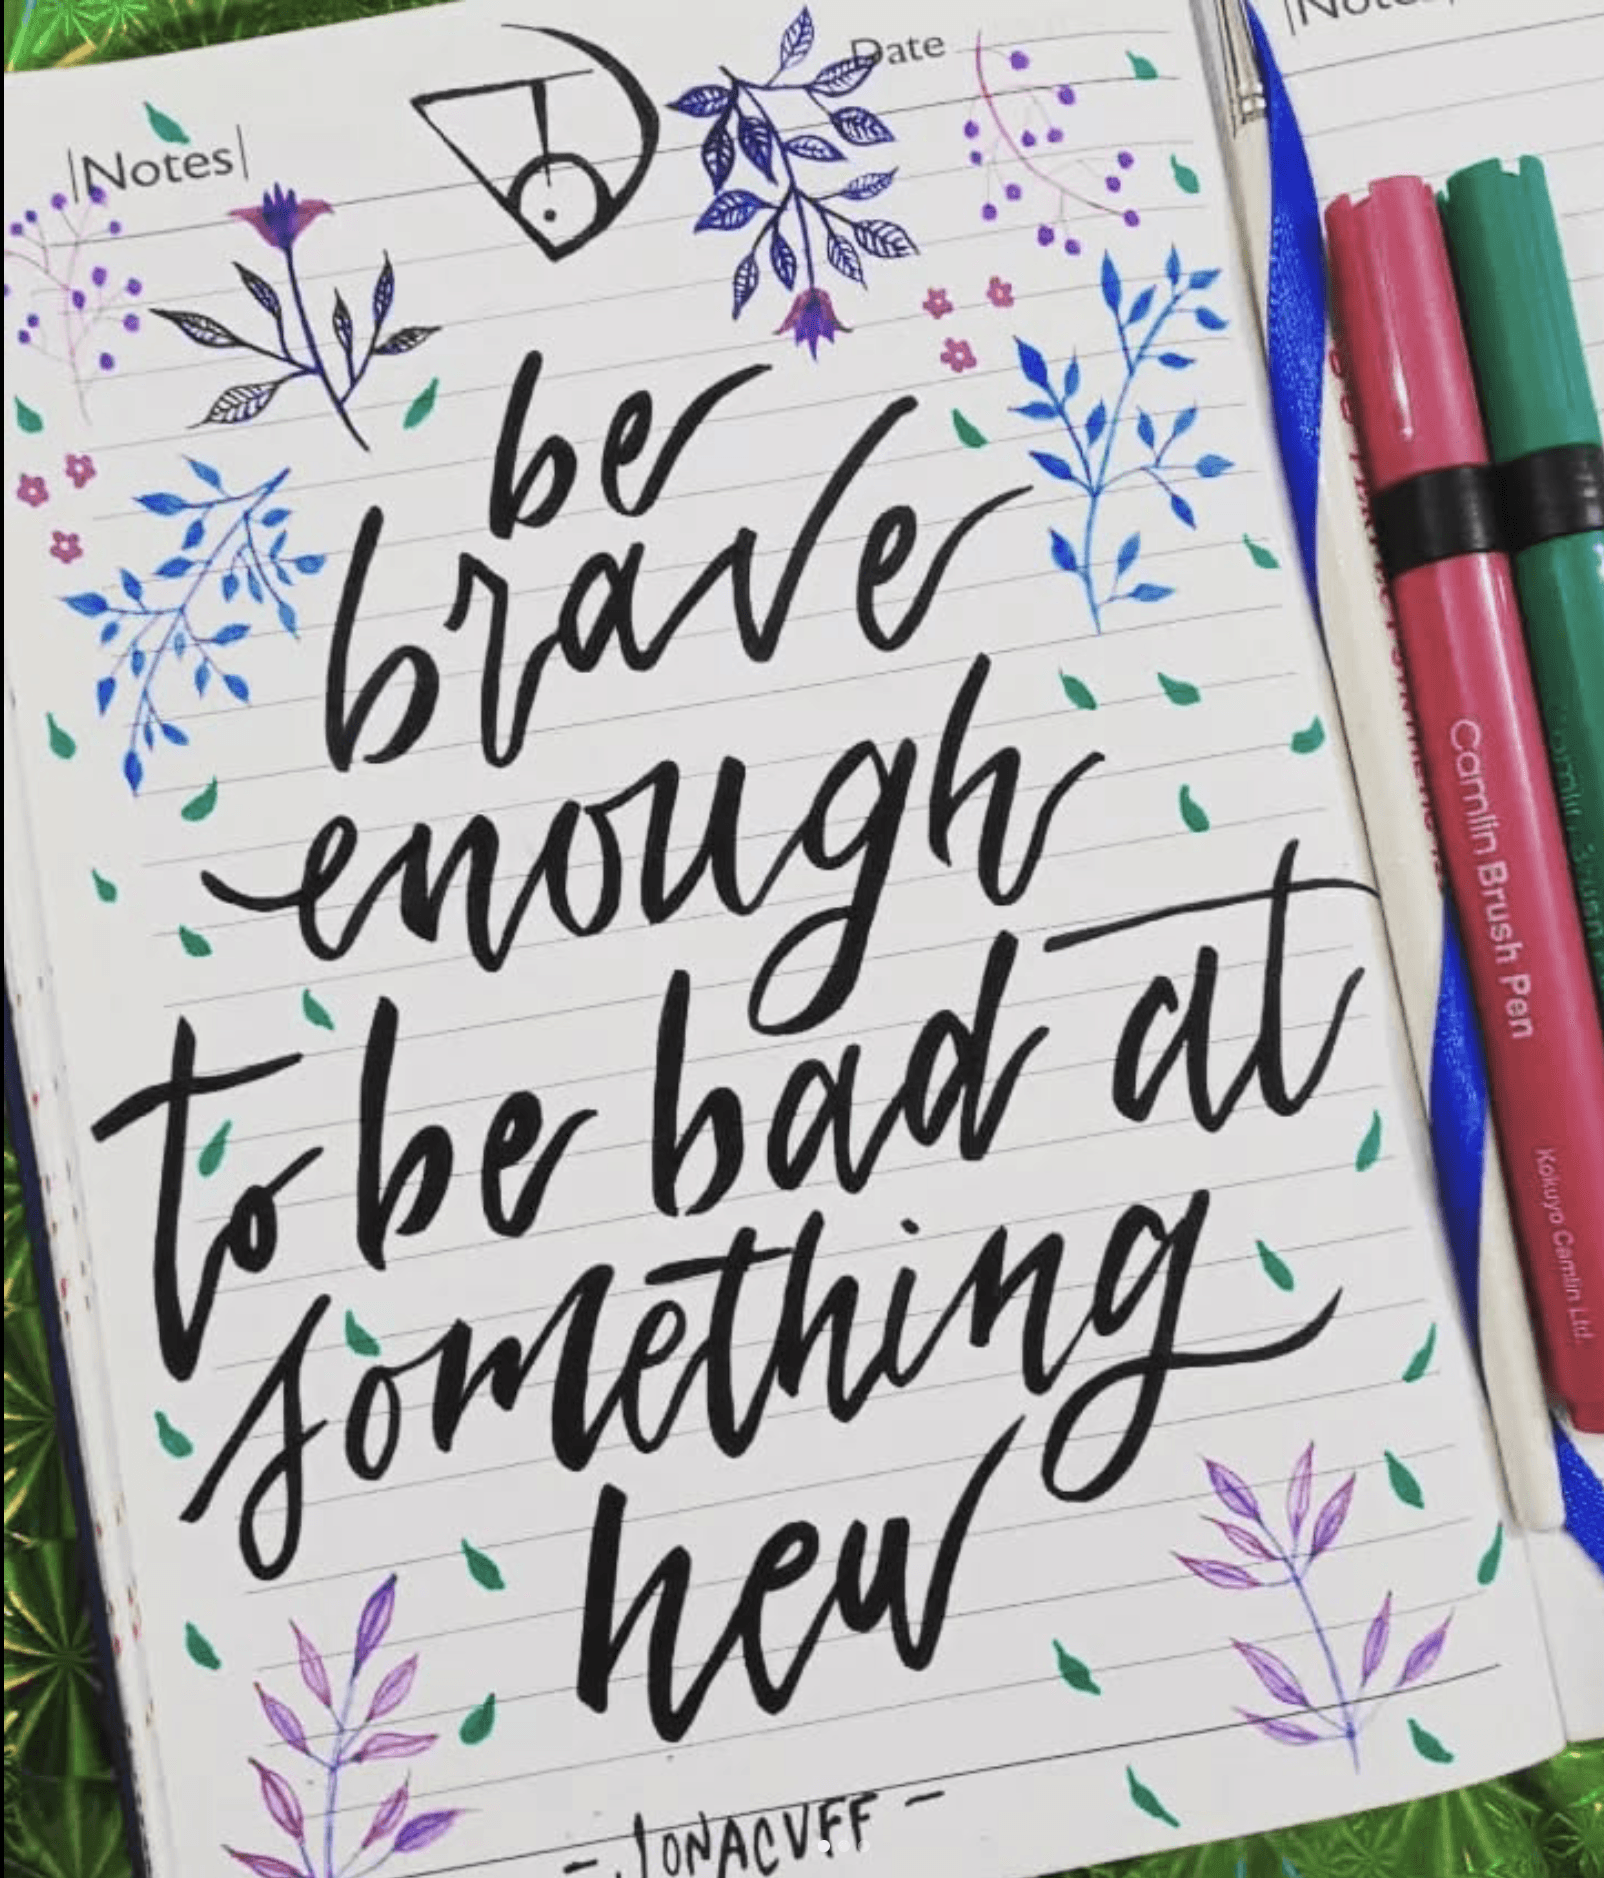 |Notes|
Date
|Notes|
be
brave
enough
to be bad at
something
new
- JONACVFF -
Camlin Brush Pen
Kokuyo Camlin Ltd.